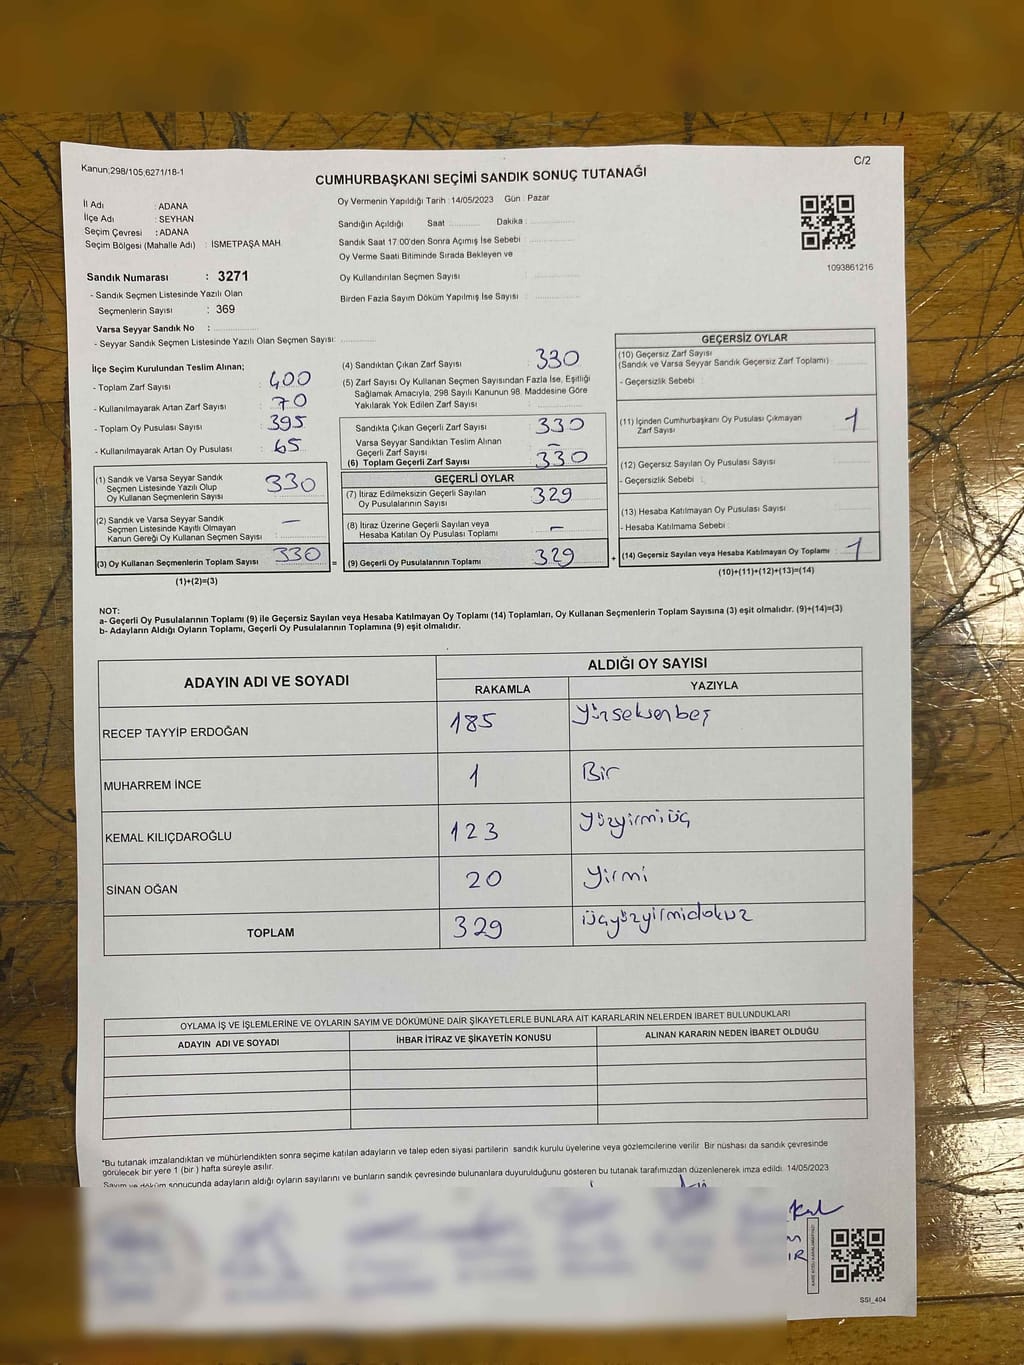 Kanun;298/105,6271/18-1
C/2
CUMHURBAŞKANI SEÇİMİ SANDIK SONUÇ TUTANAĞI
İl Adı : ADANA
İlçe Adı : SEYHAN
Seçim Çevresi : ADANA
Seçim Bölgesi (Mahalle Adı) : İSMETPAŞA MAH
Sandık Numarası : 3271
- Sandık Seçmen Listesinde Yazılı Olan
Seçmenlerin Sayısı : 369
Varsa Seyyar Sandık No :
- Seyyar Sandık Seçmen Listesinde Yazılı Olan Seçmen Sayısı:
Oy Vermenin Yapıldığı Tarih : 14/05/2023 Gün : Pazar
Sandığın Açıldığı Saat Dakika :
Sandık Saat 17.00'den Sonra Açılmış İse Sebebi :
Oy Verme Saati Bitiminde Sırada Bekleyen ve
Oy Kullandırılan Seçmen Sayısı :
Birden Fazla Sayım Döküm Yapılmış İse Sayısı :
1093861216
İlçe Seçim Kurulundan Teslim Alınan;
- Toplam Zarf Sayısı : 400
- Kullanılmayarak Artan Zarf Sayısı : 70
- Toplam Oy Pusulası Sayısı : 395
- Kullanılmayarak Artan Oy Pusulası : 65
(1) Sandık ve Varsa Seyyar Sandık
Seçmen Listesinde Yazılı Olup
Oy Kullanan Seçmenlerin Sayısı 330
(2) Sandık ve Varsa Seyyar Sandık
Seçmen Listesinde Kayıtlı Olmayan
Kanun Gereği Oy Kullanan Seçmen Sayısı : —
(3) Oy Kullanan Seçmenlerin Toplam Sayısı 330
(1)+(2)=(3)
(4) Sandıktan Çıkan Zarf Sayısı : 330
(5) Zarf Sayısı Oy Kullanan Seçmen Sayısından Fazla İse, Eşitliği
Sağlamak Amacıyla, 298 Sayılı Kanunun 98. Maddesine Göre
Yakılarak Yok Edilen Zarf Sayısı :
Sandıkta Çıkan Geçerli Zarf Sayısı : 330
Varsa Seyyar Sandıktan Teslim Alınan
Geçerli Zarf Sayısı : —
(6) Toplam Geçerli Zarf Sayısı 330
GEÇERLİ OYLAR
(7) İtiraz Edilmeksizin Geçerli Sayılan
Oy Pusulalarının Sayısı 329
(8) İtiraz Üzerine Geçerli Sayılan veya
Hesaba Katılan Oy Pusulası Toplamı —
(9) Geçerli Oy Pusulalarının Toplamı 329
GEÇERSİZ OYLAR
(10) Geçersiz Zarf Sayısı
(Sandık ve Varsa Seyyar Sandık Geçersiz Zarf Toplamı)
- Geçersizlik Sebebi :
(11) İçinden Cumhurbaşkanı Oy Pusulası Çıkmayan
Zarf Sayısı 1
(12) Geçersiz Sayılan Oy Pusulası Sayısı
- Geçersizlik Sebebi :
(13) Hesaba Katılmayan Oy Pusulası Sayısı
- Hesaba Katılmama Sebebi :
(14) Geçersiz Sayılan veya Hesaba Katılmayan Oy Toplamı 1
(10)+(11)+(12)+(13)=(14)
NOT:
a- Geçerli Oy Pusulalarının Toplamı (9) ile Geçersiz Sayılan veya Hesaba Katılmayan Oy Toplamı (14) Toplamları, Oy Kullanan Seçmenlerin Toplam Sayısına (3) eşit olmalıdır. (9)+(14)=(3)
b- Adayların Aldığı Oyların Toplamı, Geçerli Oy Pusulalarının Toplamına (9) eşit olmalıdır.
ADAYIN ADI VE SOYADI ALDIĞI OY SAYISI
RAKAMLA YAZIYLA
RECEP TAYYİP ERDOĞAN 185 yüzseksenbeş
MUHARREM İNCE 1 Bir
KEMAL KILIÇDAROĞLU 123 yüzyirmiüç
SİNAN OĞAN 20 yirmi
TOPLAM 329 üçyüzyirmidokuz
OYLAMA İŞ VE İŞLEMLERİNE VE OYLARIN SAYIM VE DÖKÜMÜNE DAİR ŞİKAYETLERLE BUNLARA AİT KARARLARIN NELERDEN İBARET BULUNDUKLARI
ADAYIN ADI VE SOYADI İHBAR İTİRAZ VE ŞİKAYETİN KONUSU ALINAN KARARIN NEDEN İBARET OLDUĞU
*Bu tutanak imzalandıktan ve mühürlendikten sonra seçime katılan adayların ve talep eden siyasi partilerin sandık kurulu üyelerine veya gözlemcilerine verilir. Bir nüshası da sandık çevresinde
görülecek bir yere 1 (bir ) hafta süreyle asılır.
Sayım ve döküm sonucunda adayların aldığı oyların sayılarını ve bunların sandık çevresinde bulunanlara duyurulduğunu gösteren bu tutanak tarafımızdan düzenlenerek imza edildi. 14/05/2023
SSI_404